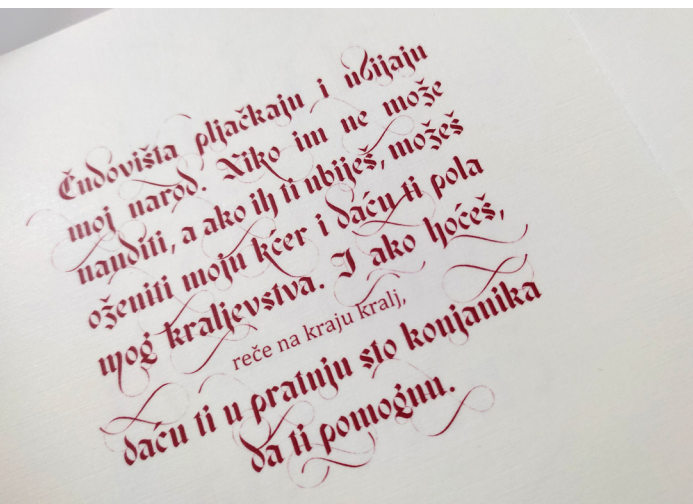 Čudovišta pljačkaju i ubijaju
moj narod. Niko im ne može
nauditi, a ako ih ti ubiješ, možeš
oženiti moju kćer i daću ti pola
mog kraljevstva. I ako hoćeš,
reče na kraju kralj,
daću ti u pratnju sto konjanika
da ti pomognu.